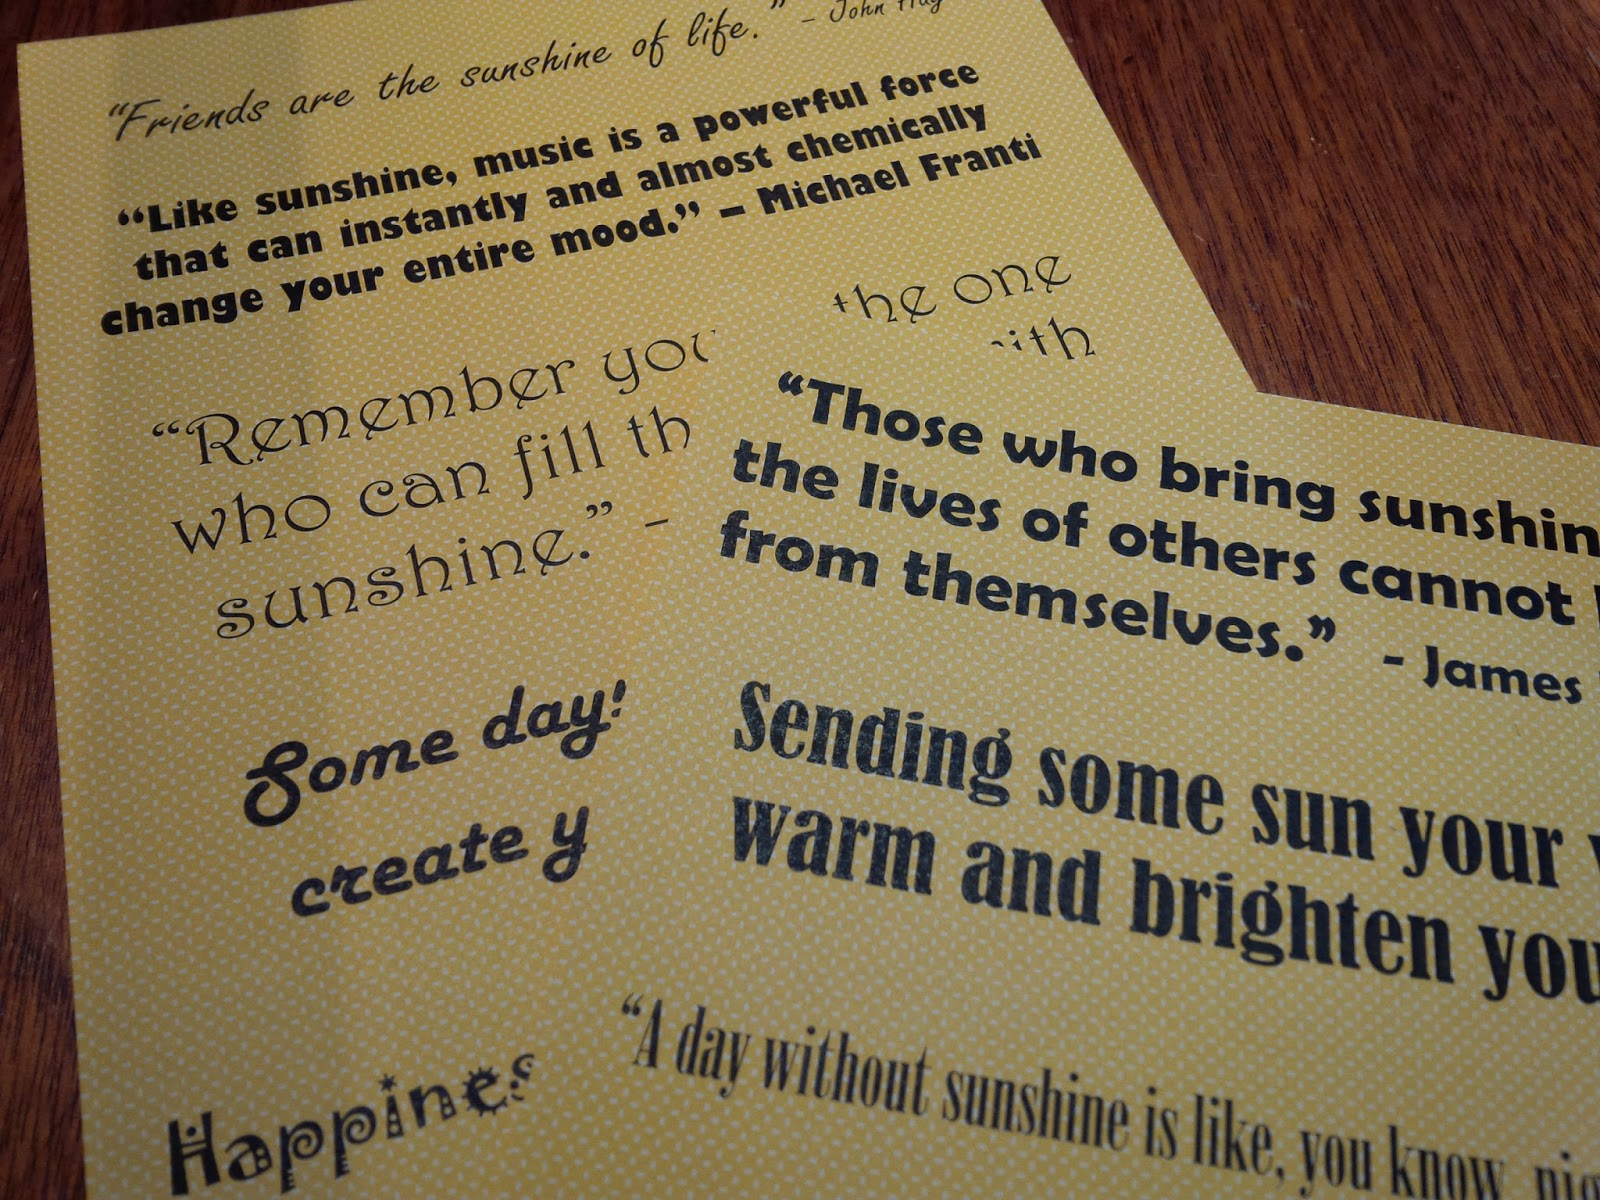 “Friends are the sunshine of life.” – John
“Like sunshine, music is a powerful force
that can instantly and almost chemically
change your entire mood.” – Michael Franti
“Remember
the one
who can fill
sunshine.” –
Some day!
create y
“Those who bring
the lives of others cannot
from themselves.” - James
Sending some sun your
warm and brighten
“A day without sunshine is like, you know,